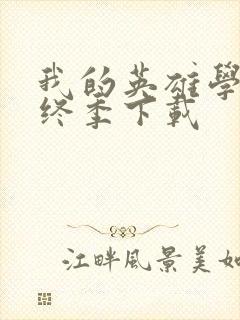 我的英雄學
終季下載
江畔風景美如